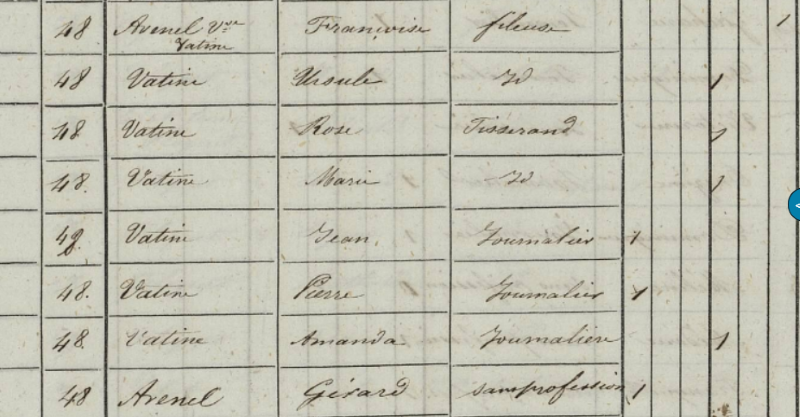 48 Avenel Vve Françoise fileuse 1
Vatine
48 Vatine Ursule Id 1
48 Vatine Rose Tisserand 1
48. Vatine Marie Id 1
48. Vatine Jean, Journalier 1
48. Vatine Pierre Journalier 1
48. Vatine Amanda Journalière 1
48 Avenel Gérard sans profession 1